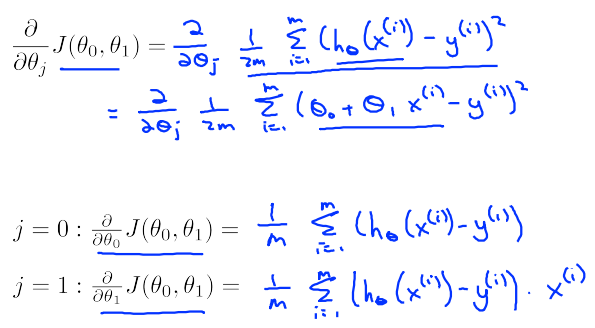 ∂/∂θⱼ J(θ₀, θ₁) = ∂/∂θⱼ 1/2m Σᵢ₌₁ᵐ (h_θ(x⁽ⁱ⁾) - y⁽ⁱ⁾)²
= ∂/∂θⱼ 1/2m Σᵢ₌₁ᵐ (θ₀ + θ₁ x⁽ⁱ⁾ - y⁽ⁱ⁾)²
j = 0 : ∂/∂θ₀ J(θ₀, θ₁) = 1/m Σᵢ₌₁ᵐ (h_θ(x⁽ⁱ⁾) - y⁽ⁱ⁾)
j = 1 : ∂/∂θ₁ J(θ₀, θ₁) = 1/m Σᵢ₌₁ᵐ (h_θ(x⁽ⁱ⁾) - y⁽ⁱ⁾) · x⁽ⁱ⁾